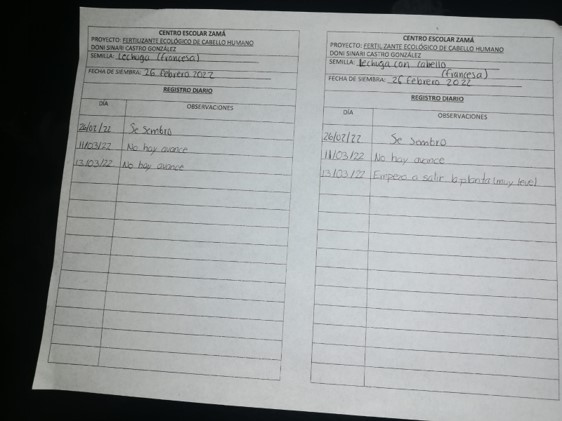 CENTRO ESCOLAR ZAMÁ
PROYECTO: FERTILIZANTE ECOLÓGICO DE CABELLO HUMANO
DONI SINARI CASTRO GONZÁLEZ
SEMILLA: Lechuga (Francesa)
FECHA DE SIEMBRA: 26 Febrero 2022
REGISTRO DIARIO
DÍA OBSERVACIONES
26/02/22 Se sembro
11/03/22 No hay avance
13/03/22 No hay avance
CENTRO ESCOLAR ZAMÁ
PROYECTO: FERTILIZANTE ECOLÓGICO DE CABELLO HUMANO
DONI SINARI CASTRO GONZÁLEZ
SEMILLA: Lechuga con cabello
(Francesa)
FECHA DE SIEMBRA: 26 Febrero 2022
REGISTRO DIARIO
DÍA OBSERVACIONES
26/02/22 Se sembro
11/03/22 No hay avance
13/03/22 Empezo a salir la planta (muy leve)